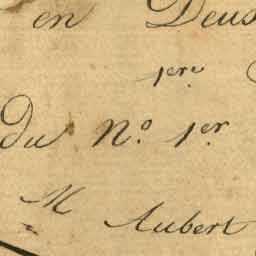 en Deus
1ere
Du N.o 1er.
M Aubert